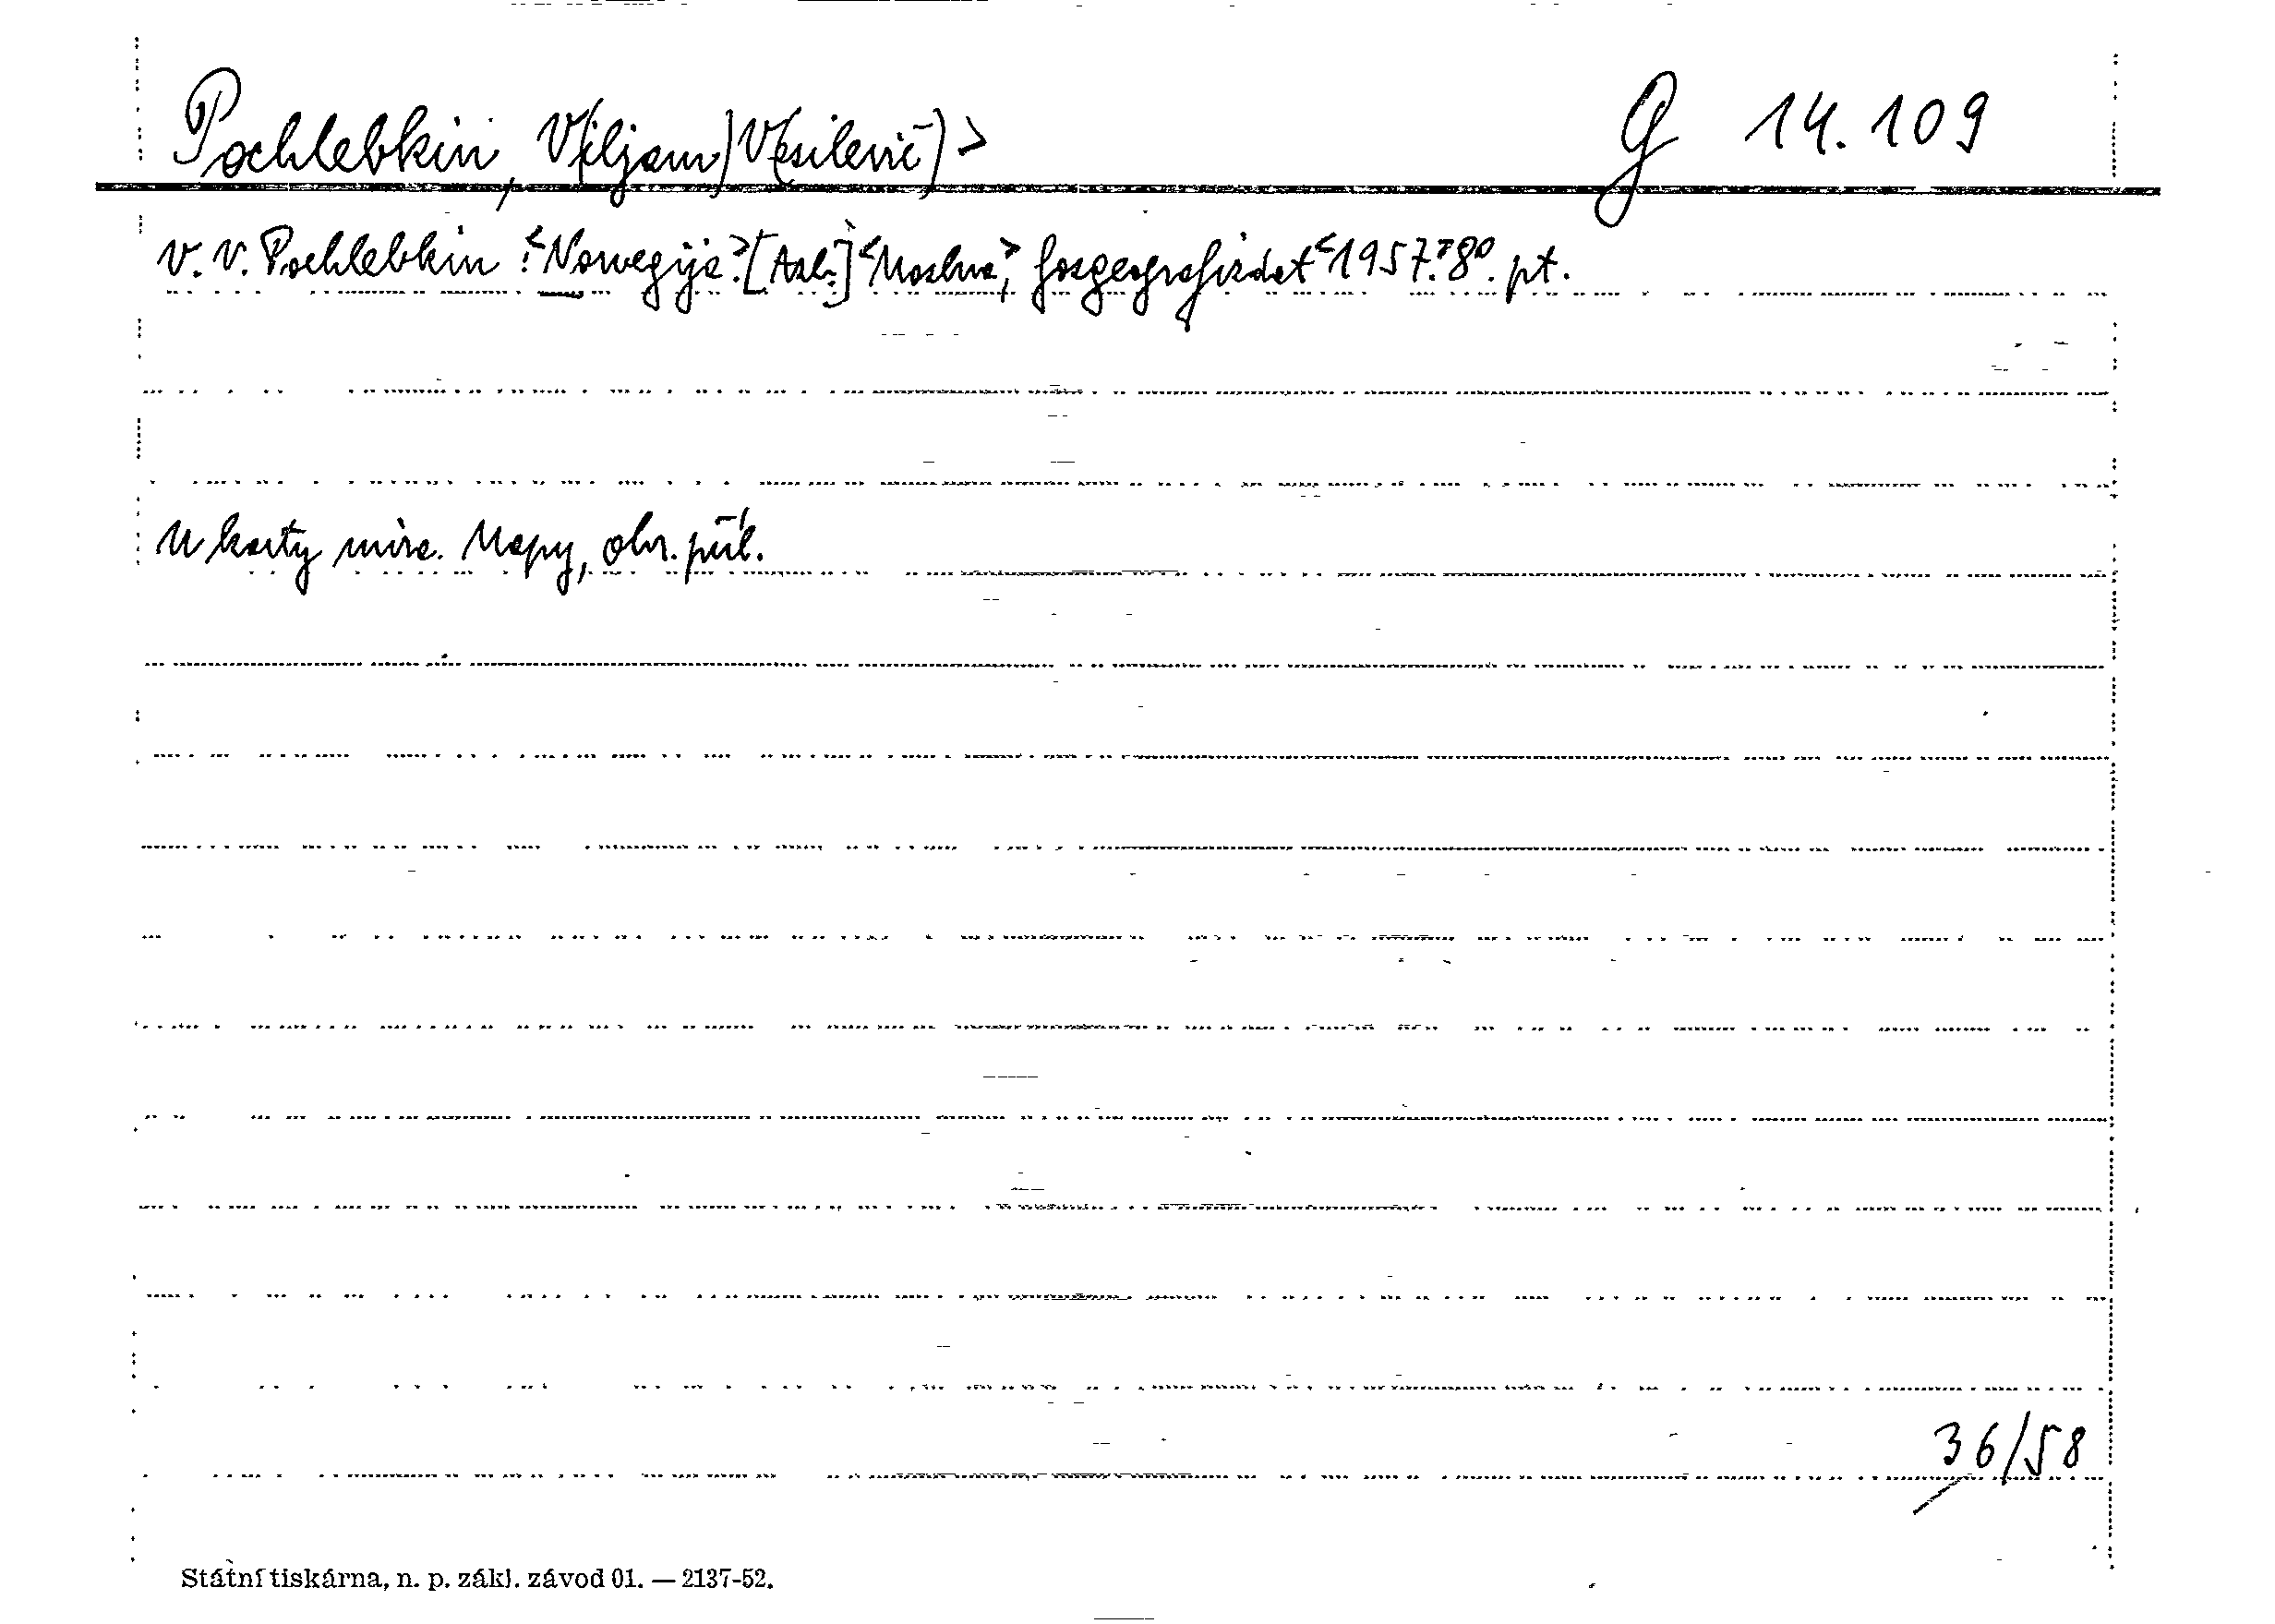 Pochlebkin, V(iljam) V(asilevič)> G 14.109
V. V. Pochlebkin: <Norvegija.> [Azb.] <Moskva,> Gosgeografizdat <1957.> 8°. pt.
U karty mira. Mapy, obr. příl.
36/58
Státní tiskárna, n. p. zákl. závod 01. — 2137-52.